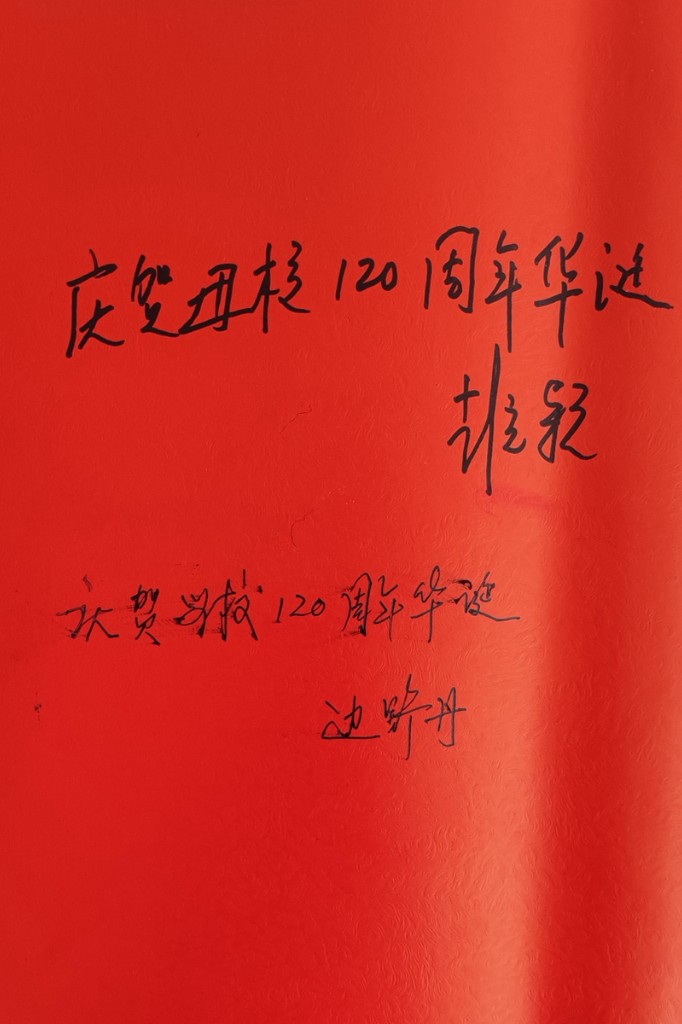 庆贺母校120周年华诞
庆贺母校120周年华诞
边
丹